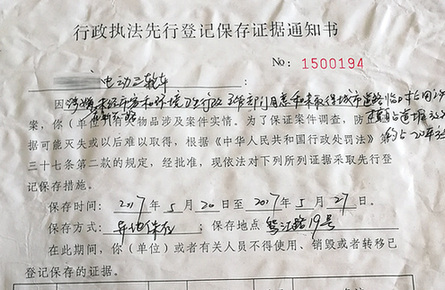 行政执法先行登记保存证据通知书
No: 1500194
电动三轮车
因 未经市容和环境卫生行政主管部门同意和未取得城市道路临时占用
案，你（单位）有关物品涉及案件实情。为了保证案件调查，防
据可能灭失或以后难以取得，根据《中华人民共和国行政处罚法》第
三十七条第二款的规定，经批准，现依法对下列所列证据采取先行登
记保存措施。
保存时间：2017年5月20日至2017年5月27日。
保存方式：异地保存；保存地点 路19号
在此期间，你（单位）或者有关人员不得使用、销毁或者转移已
登记保存的证据。